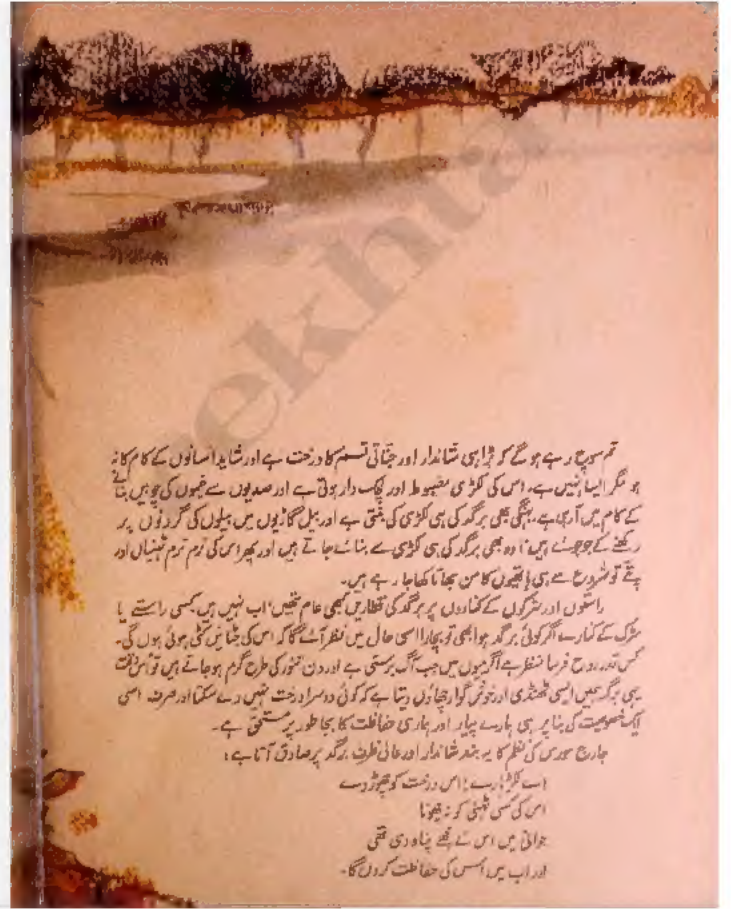 تم سوچ رہے ہوگے کہ بڑا ہی شاندار اور جنّاتی قسم کا درخت ہے اور شاید انسانوں کے کام کا نہ
ہو مگر ایسا نہیں ہے۔ اس کی لکڑی مضبوط اور لچک دار ہوتی ہے اور صدیوں سے خیموں کی چوبیں بنانے
کے کام میں آ رہی ہے۔ بہنگی بھی برگد کی ہی لکڑی کی بنتی ہے اور بیل گاڑیوں میں بیلوں کی گردنوں پر
رکھنے کے جو جوئے ہیں، وہ بھی برگد کی ہی لکڑی سے بنائے جاتے ہیں اور پھر اس کی نرم نرم ٹہنیاں اور
پتّے تو شروع سے ہی ہاتھیوں کا من بھاتا کھاجا رہے ہیں۔
راستوں اور سڑکوں کے کناروں پر برگد کی قطاریں کبھی عام تھیں، اب نہیں ہیں۔ کسی راستے یا
سڑک کے کنارے اگر کوئی برگد ہوا بھی تو بچارا اسی حال میں نظر آئے گا کہ اس کی جٹائیں کٹی ہوئی ہوں گی۔
کس قدر روح فرسا منظر ہے! گرمیوں میں جب آگ برستی ہے اور دن تنور کی طرح گرم ہو جاتے ہیں تو اس وقت
یہی برگد ہمیں ایسی ٹھنڈی اور خوش گوار چھاؤں دیتا ہے کہ کوئی دوسرا درخت نہیں دے سکتا اور صرف اسی
ایک خصوصیت کی بنا پر ہی ہمارے پیار اور ہماری حفاظت کا بجا طور پر مستحق ہے۔
جارج مورس کی نظم کا یہ بند شاندار اور عالی ظرف برگد پر صادق آتا ہے:
اے لکڑہارے! اس درخت کو چھوڑ دے
اس کی کسی ٹہنی کو نہ چھونا
جوانی میں اس نے مجھے پناہ دی تھی
اور اب میں اس کی حفاظت کروں گا۔
ekhta